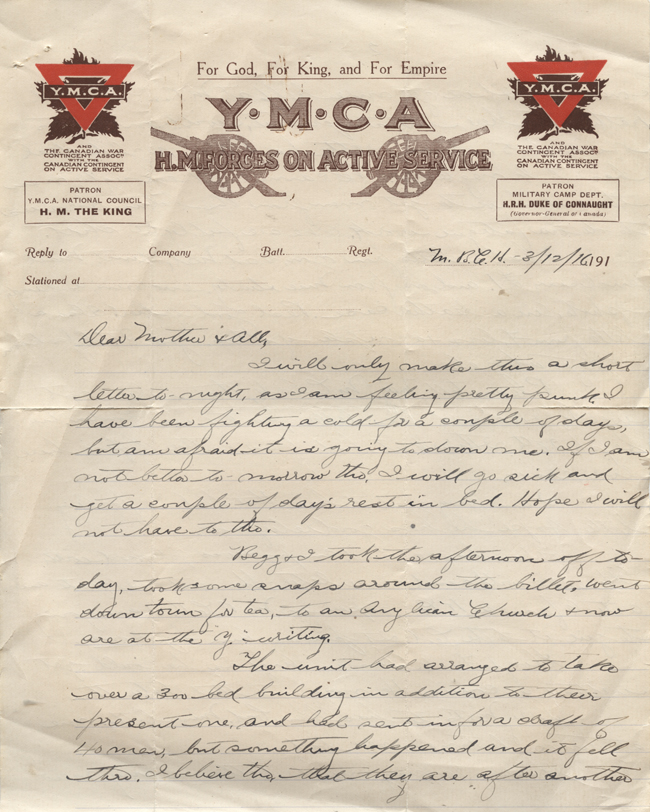 For God, For King, and For Empire
Y.M.C.A.
AND
THE CANADIAN WAR
CONTINGENT ASSOCN
WITH THE
CANADIAN CONTINGENT
ON ACTIVE SERVICE
PATRON
Y.M.C.A. NATIONAL COUNCIL
H. M. THE KING
Y·M·C·A
H.M. FORCES ON ACTIVE SERVICE
Y.M.C.A.
AND
THE CANADIAN WAR
CONTINGENT ASSOCN
WITH THE
CANADIAN CONTINGENT
ON ACTIVE SERVICE
PATRON
MILITARY CAMP DEPT.
H.R.H. DUKE OF CONNAUGHT
(Governor-General of Canada)
Reply to Company Batt. Regt. 3/12/16 191
Stationed at
Dear Mother & All,
I will only make this a short
letter to-night, as I am feeling pretty punk. I
have been fighting a cold for a couple of days,
but am afraid it is going to down me. If I am
not better to-morrow tho, I will go sick and
get a couple of day's rest in bed. Hope I will
not have to tho.
Begg & I took the afternoon off to-
day, took some snaps around the billet, went
down town for tea, to an Anglican Church & now
are at the "Y" writing.
The unit had arranged to take
over a 300 bed building in addition to their
present one, and had sent in for a draft of
40 men, but something happened and it fell
thro. I believe tho, that they are after another